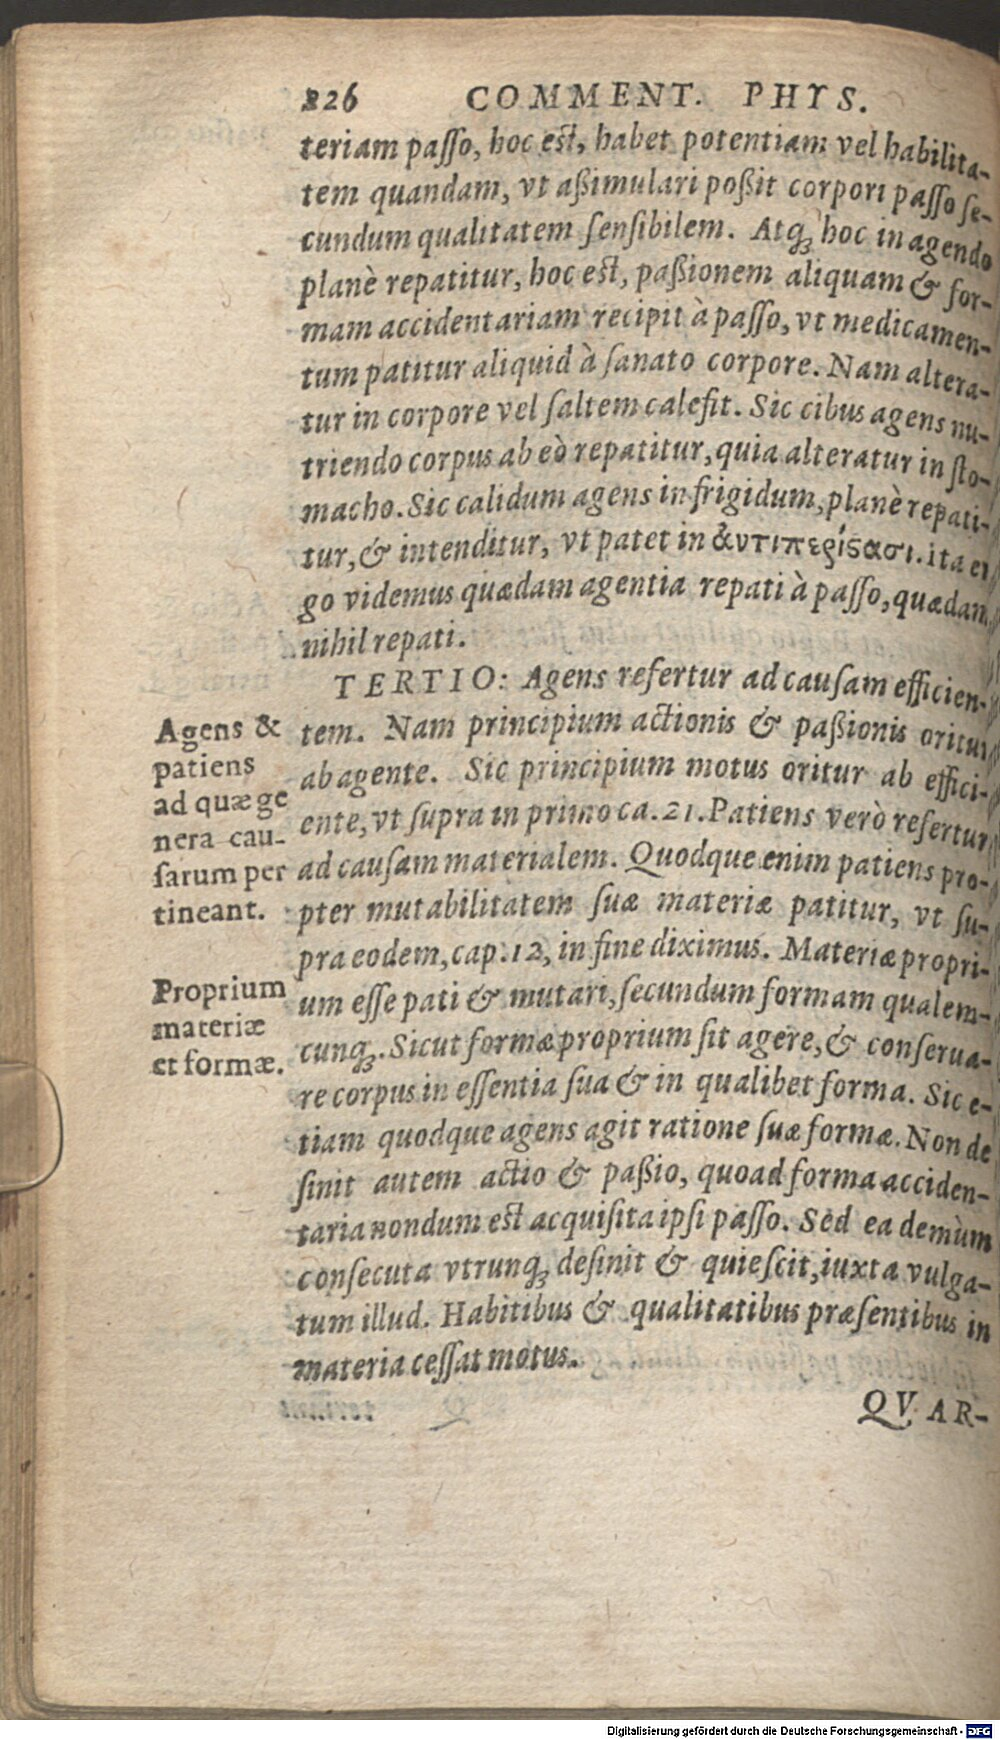 226 COMMENT. PHYS.
teriam passo, hoc est, habet potentiam vel habilita-
tem quandam, vt aßimulari poßit corpori passo se-
cundum qualitatem sensibilem. Atq́; hoc in agendo
planè repatitur, hoc est, paßionem aliquam & for-
mam accidentariam recipit à passo, vt medicamen-
tum patitur aliquid à sanato corpore. Nam altera-
tur in corpore vel saltem calefit. Sic cibus agens nu-
triendo corpus ab eò repatitur, quia alteratur in sto-
macho. Sic calidum agens in frigidum, planè repati-
tur, & intenditur, vt patet in ἀντιπερίϛασι. ita er
go videmus quædam agentia repati à passo, quædam
nihil repati.
TERTIO: Agens refertur ad causam efficien-
tem. Nam principium actionis & paßionis oritur
ab agente. Sic principium motus oritur ab effici-
ente, vt supra in primo ca. 21. Patiens verò refertur
ad causam materialem. Quodque enim patiens pro-
pter mutabilitatem suæ materiæ patitur, vt su-
pra eodem, cap. 12, in fine diximus. Materiæ propri-
um esse pati & mutari, secundum formam qualem-
cunq́;. Sicut formæ proprium sit agere, & conserua-
re corpus in essentia sua & in qualibet forma. Sic e-
tiam quodque agens agit ratione suæ formæ. Non de
sinit autem actio & paßio, quoad forma acciden-
taria nondum est acquisita ipsi passo. Sed ea demùm
consecuta vtrunq́; desinit & quiescit, iuxta vulga-
tum illud. Habitibus & qualitatibus præsentibus in
materia cessat motus.
QVAR-
Agens &
patiens
ad quæ ge
nera cau-
sarum per
tineant.
Proprium
materiæ
et formæ.
Digitalisierung gefördert durch die Deutsche Forschungsgemeinschaft - DFG